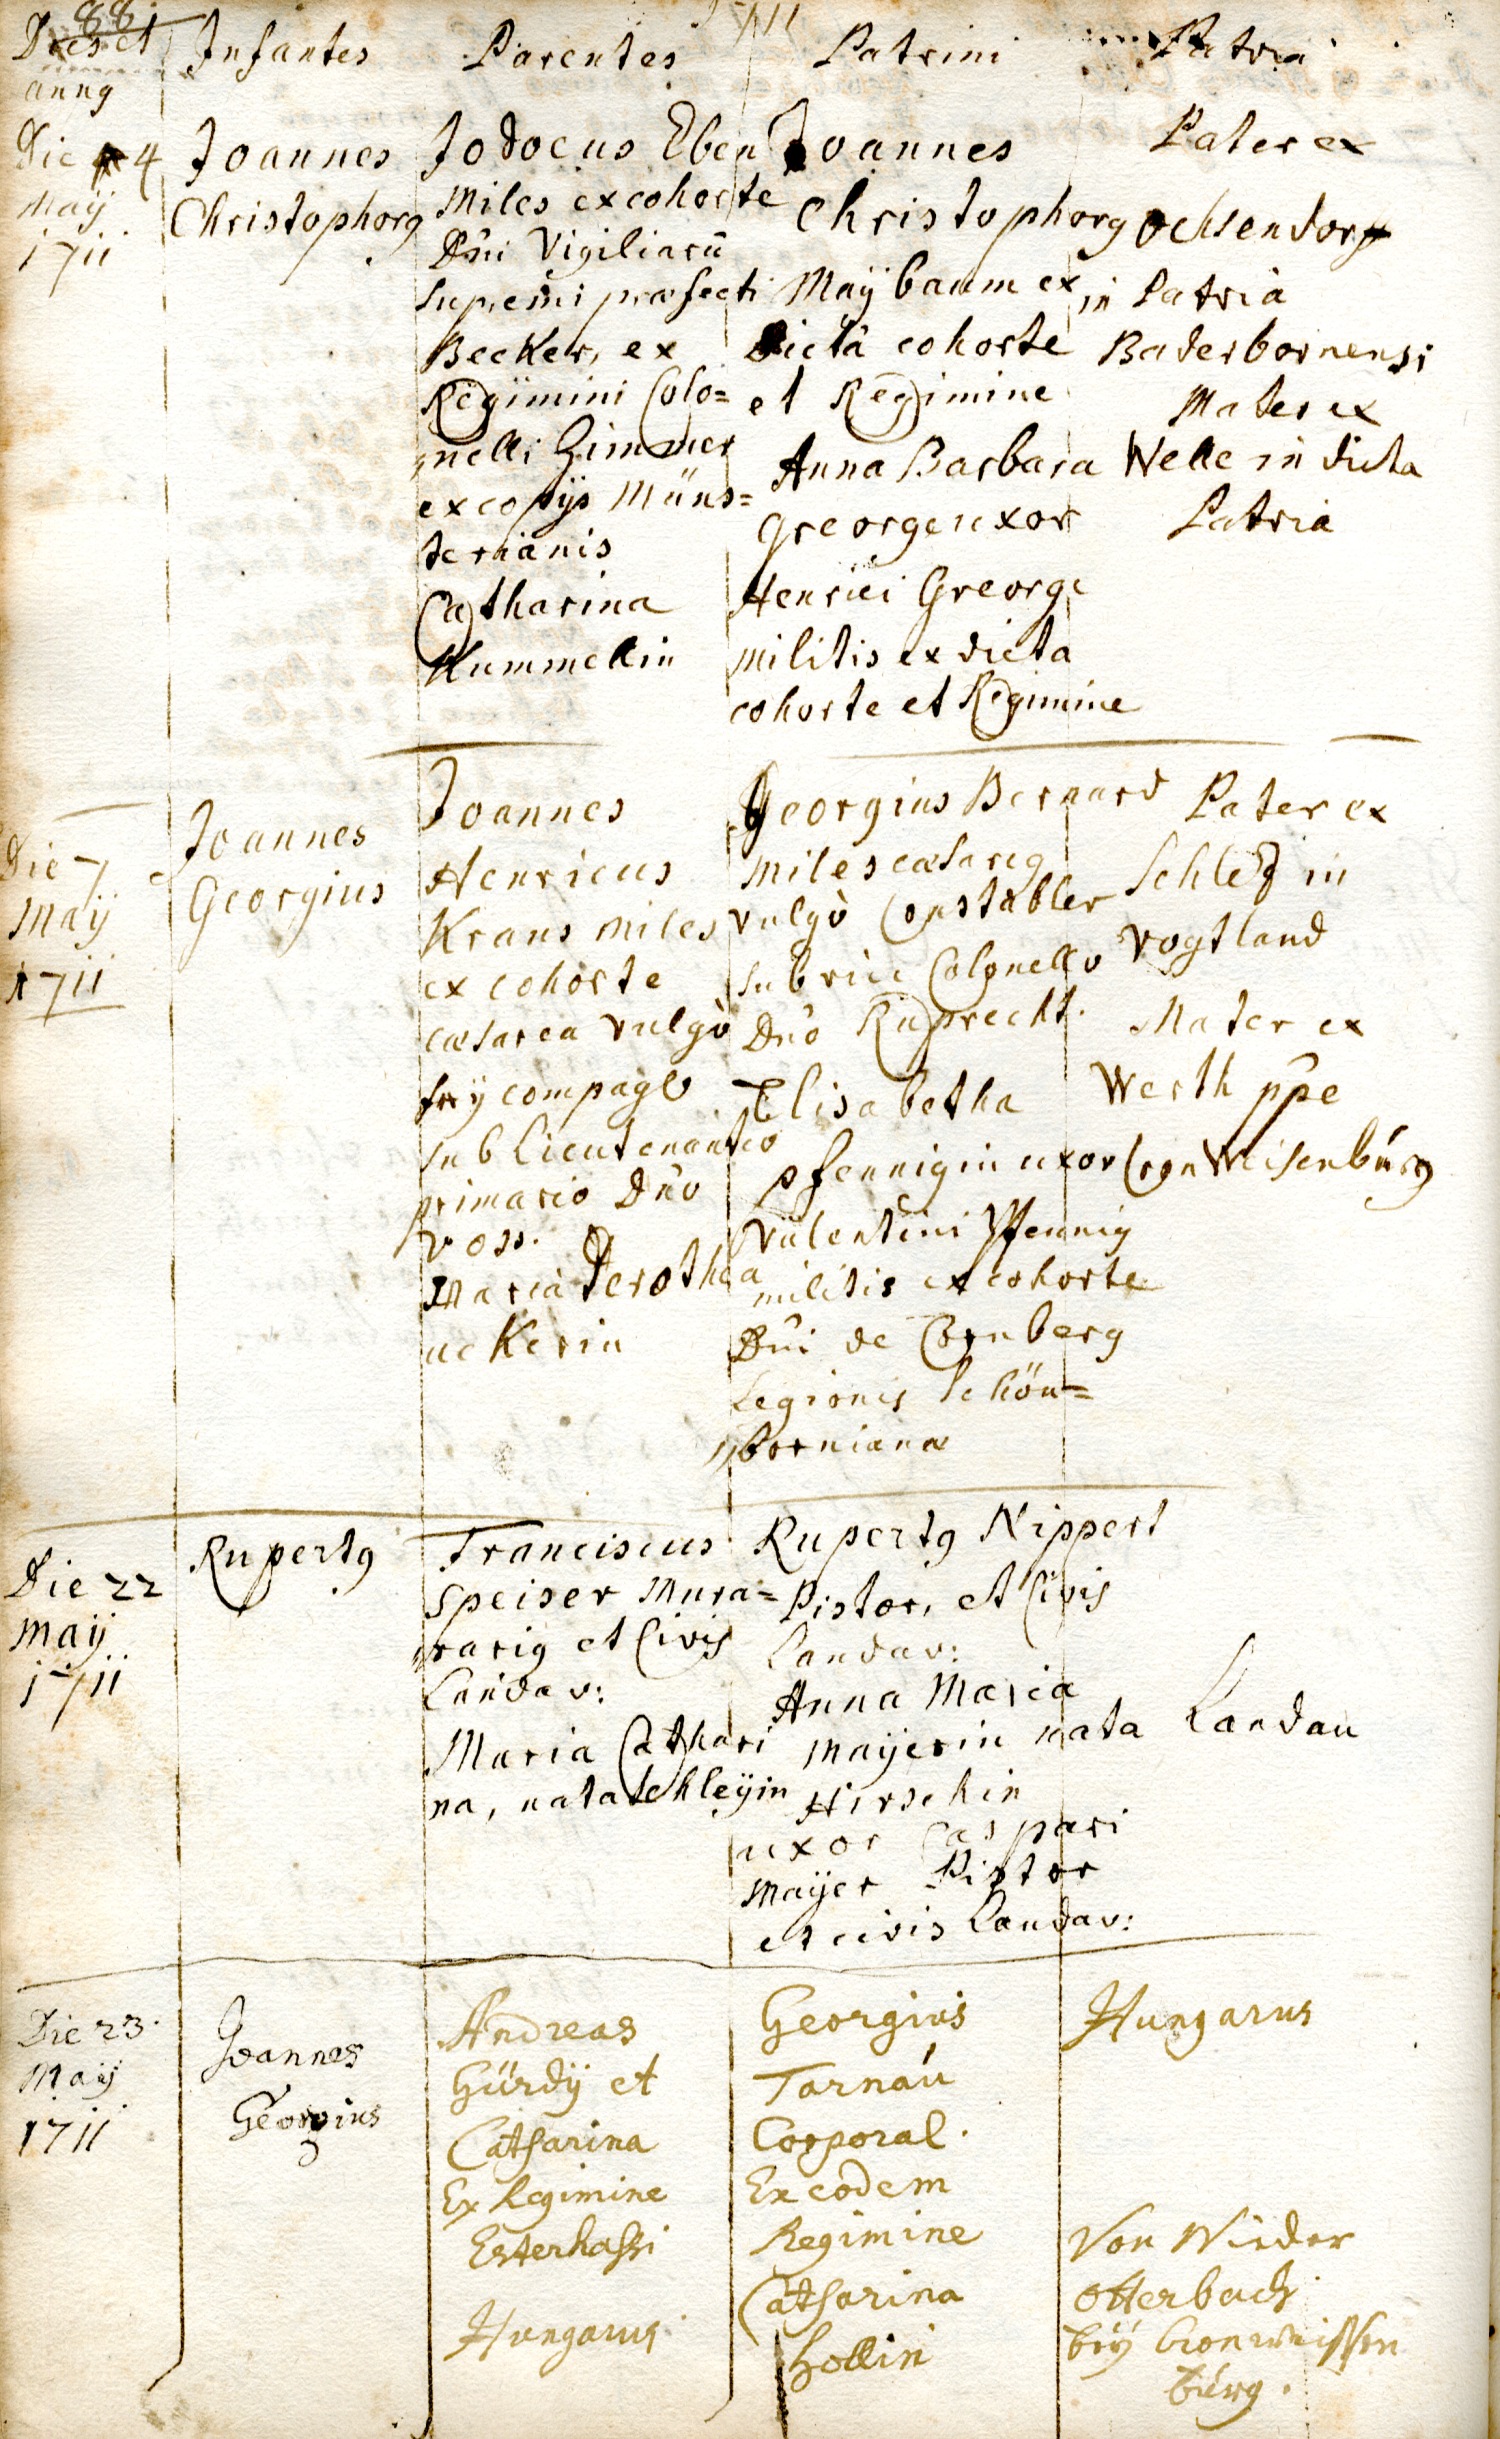 88
1711
Dies et
annꝯ
Infantes
Parentes
Patrini
Patria
Die 4
Maÿ
1711
Joannes
Christophorꝯ
Jodocus Eben
Miles ex cohorte
Dñi Vigiliarū
supremi præfecti
Becker, ex
Regimini Colo=
nelli Zimmer
ex copijs Müns=
terianis
Catharina
Kummellin
Joannes
Christophorꝯ
Maÿbaum ex
dictâ cohorte
et Regimine
Anna Barbara
Greorgen uxor
Henrici Greorge
militis ex dicta
cohorte et Regimine
Pater ex
Ochsendorf
in Patria
Baderbornensi
Mater ex
Welle in dicta
Patria
Die 7
Maÿ
1711
Joannes
Georgius
Joannes
Henricus
Kraus miles
ex cohorte
cæsarea vulgò
freÿ compagℓ
sub Lieutenantio
primario Dño
Voss.
Maria Derothea
uckerin
Georgius Bernard
miles cæsareꝯ
vulgò Constabler
sub vice Colonello
Dño Ruprecht.
Elisabetha
Pfennigin uxor
Valentini Pfennig
militis ex cohorte
Dñi de Cornberg
Legionis schön=
bornianæ
Pater ex
Schletz in
Vogtland
Mater ex
Werth ppe
Cron Weisenburg
Die 22
maÿ
1711
Rupertꝯ
Franciscus
Speiser Mura=
rariꝯ et Civis
Landav:
Maria Cathari
na, nata schleÿin
Rupertꝯ Nippert
Pistor, et Civis
Landav:
Anna Maria
Maÿerin nata
Hirschin
uxor Caspari
Maÿer Pistor
et civis Landav:
Landau
Die 23.
Maÿ
1711
Joannes
Georgius
Andreas
Gürdÿ et
Catharina
Ex Regimine
Esterhassi
Hungarus.
Georgius
Tarnau
Corporal.
Ex eodem
Regimine
Catharina
Hollin
Hungarus
Von Nieder
Otterbach
beÿ Cronweissen
burg.